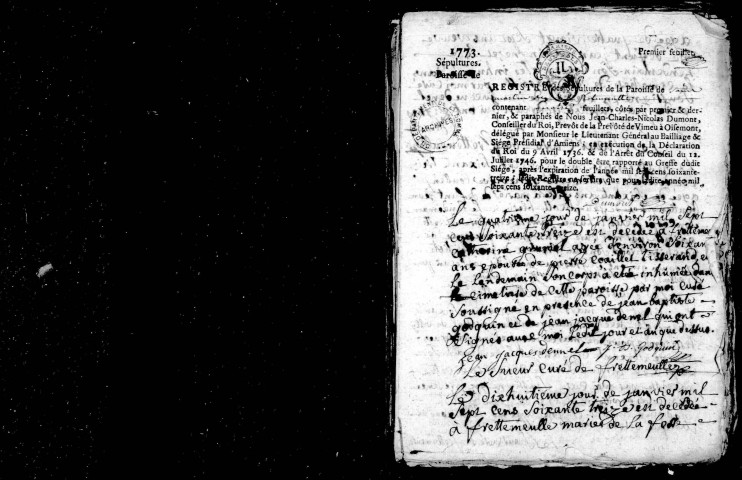 1773.
Premier feuillet
Sépultures.
Paroisse de
REGISTRE des Sépultures de la Paroisse de
contenant feuillets, cotés par premier & der-
nier, & paraphés de Nous Jean-Charles-Nicolas Dumont,
Conseiller du Roi, Prevôt de la Prevôté de Vimeu à Oisemont,
délégué par Monsieur le Lieutenant Général au Bailliage &
Siége Présidial d'Amiens; en exécution de la Déclaration
du Roi du 9 Avril 1736. & de l'Arrêt du Conseil du 12.
Juillet 1746. pour le double être rapporté au Greffe dudit
Siége, après l'expiration de l'année mil sept cens soixante-
treize; que pour ladite année mil
sept cens soixante-treize.
Dumont
Le quatrieme jour de janvier mil sept
cens soixante treize est decedée a frettemeulle
catherine agée d'environ soixante
ans epouse de pierre tisserand, et
le lendemain son corps a été inhumée dans
le cimetiere de cette paroisse par moi curé
soussigné en presence de jean baptiste
godquin et de jean jacque denel qui ont
signés avec moi ledit jour et an que dessus.
jean jacques dennel j. B. godquin
Le Sueur curé de frettemeulle
Le dixhuitieme jour de janvier mil
sept cens soixante treize est decedée
à frettemeulle marie de la